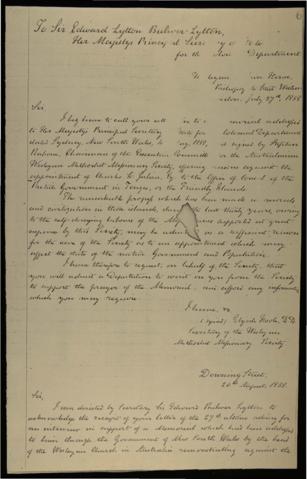 To Sir Edward Lytton Bulwer Lytton,
Her Majesty's Principal Secretary of State
for the Department
Wesleyan Mission House,
July 27th 1858.
Sir,
I beg leave to call your attention to a memorial addressed
to Her Majesty's Principal Secretary of State for Colonial Department
dated Sydney, New South Wales, 1858, signed by
Chairman of the Executive Committee of the Australasian
Wesleyan Methodist Missionary Society, reasons against the
appointment of Charles St Julian, to the Office of Consul of the
British Government in Tonga, or the Friendly Islands.
The remarkable progress which has been made in morals
and civilization in these islands, during the last thirty years, owing
to the self-denying labours of the Missionaries supported at great
expense by this Society, may be as a sufficient reason
for the of the Society to an appointment which may
affect the state of the native Government and Population.
I have therefore to request, on behalf of the Society, that
you will admit a Deputation to wait on you from the Society
to support the prayer of the Memorial, and afford any information
which you may require.
I have, &c
Signed, Elijah Hoole, D.D.
Secretary of the Wesleyan
Methodist Missionary Society.
Downing Street,
August, 1858.
Sir,
I am directed by Secretary Sir Edward Bulwer Lytton to
acknowledge the receipt of your letter of the 27th ultimo asking for
an interview in support of a Memorial which had been addressed
to him through the Government of New South Wales by the head
of the Wesleyan Church in Australia remonstrating against the